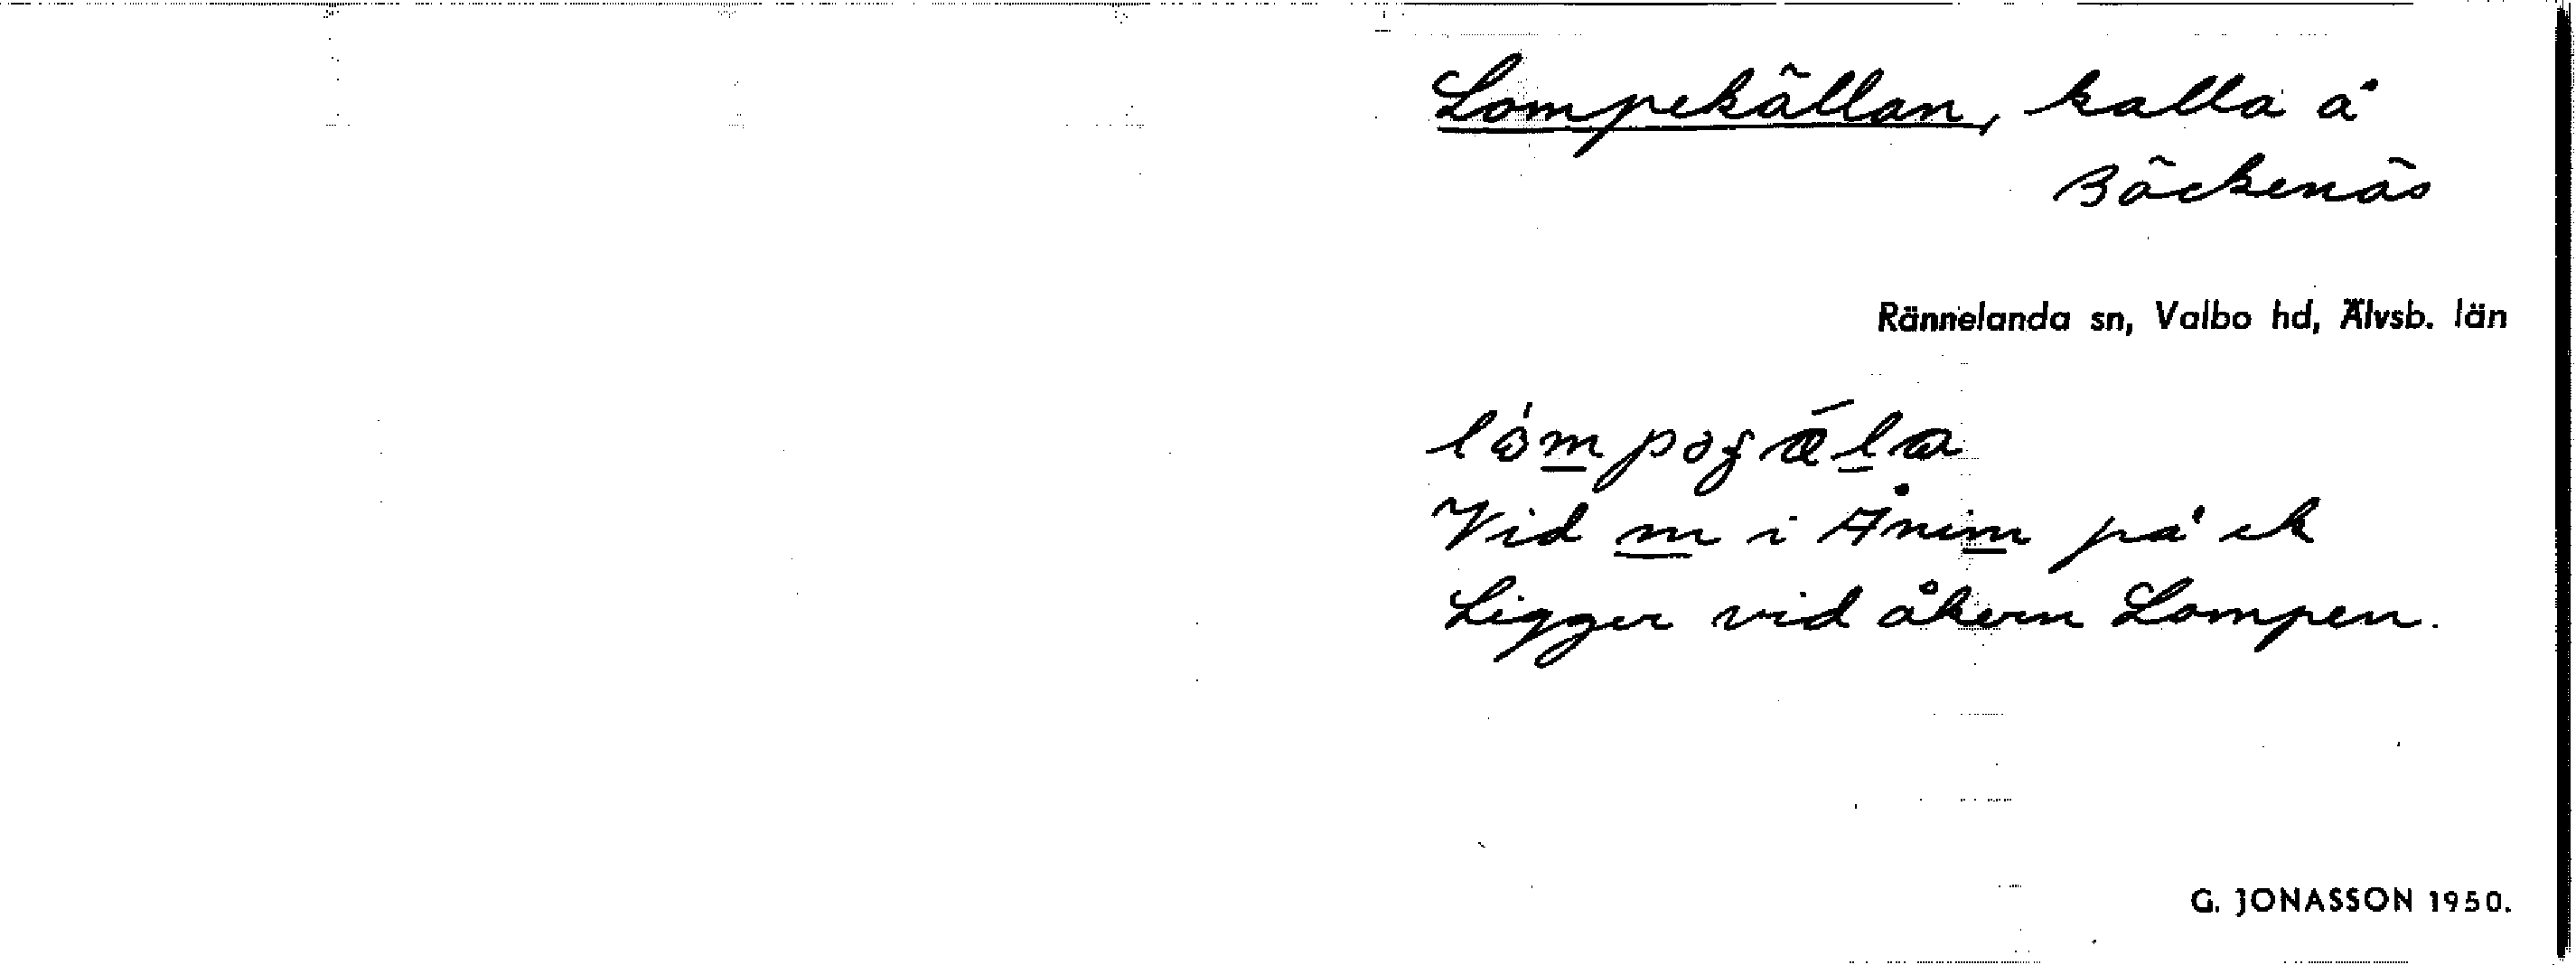 Lompekällan, kalla å
Bäckenäs
Rännelanda sn, Valbo hd, Älvsb. län
Vid m i Ånim på ek
Ligger vid åkern Lompen.
G. JONASSON 1950.